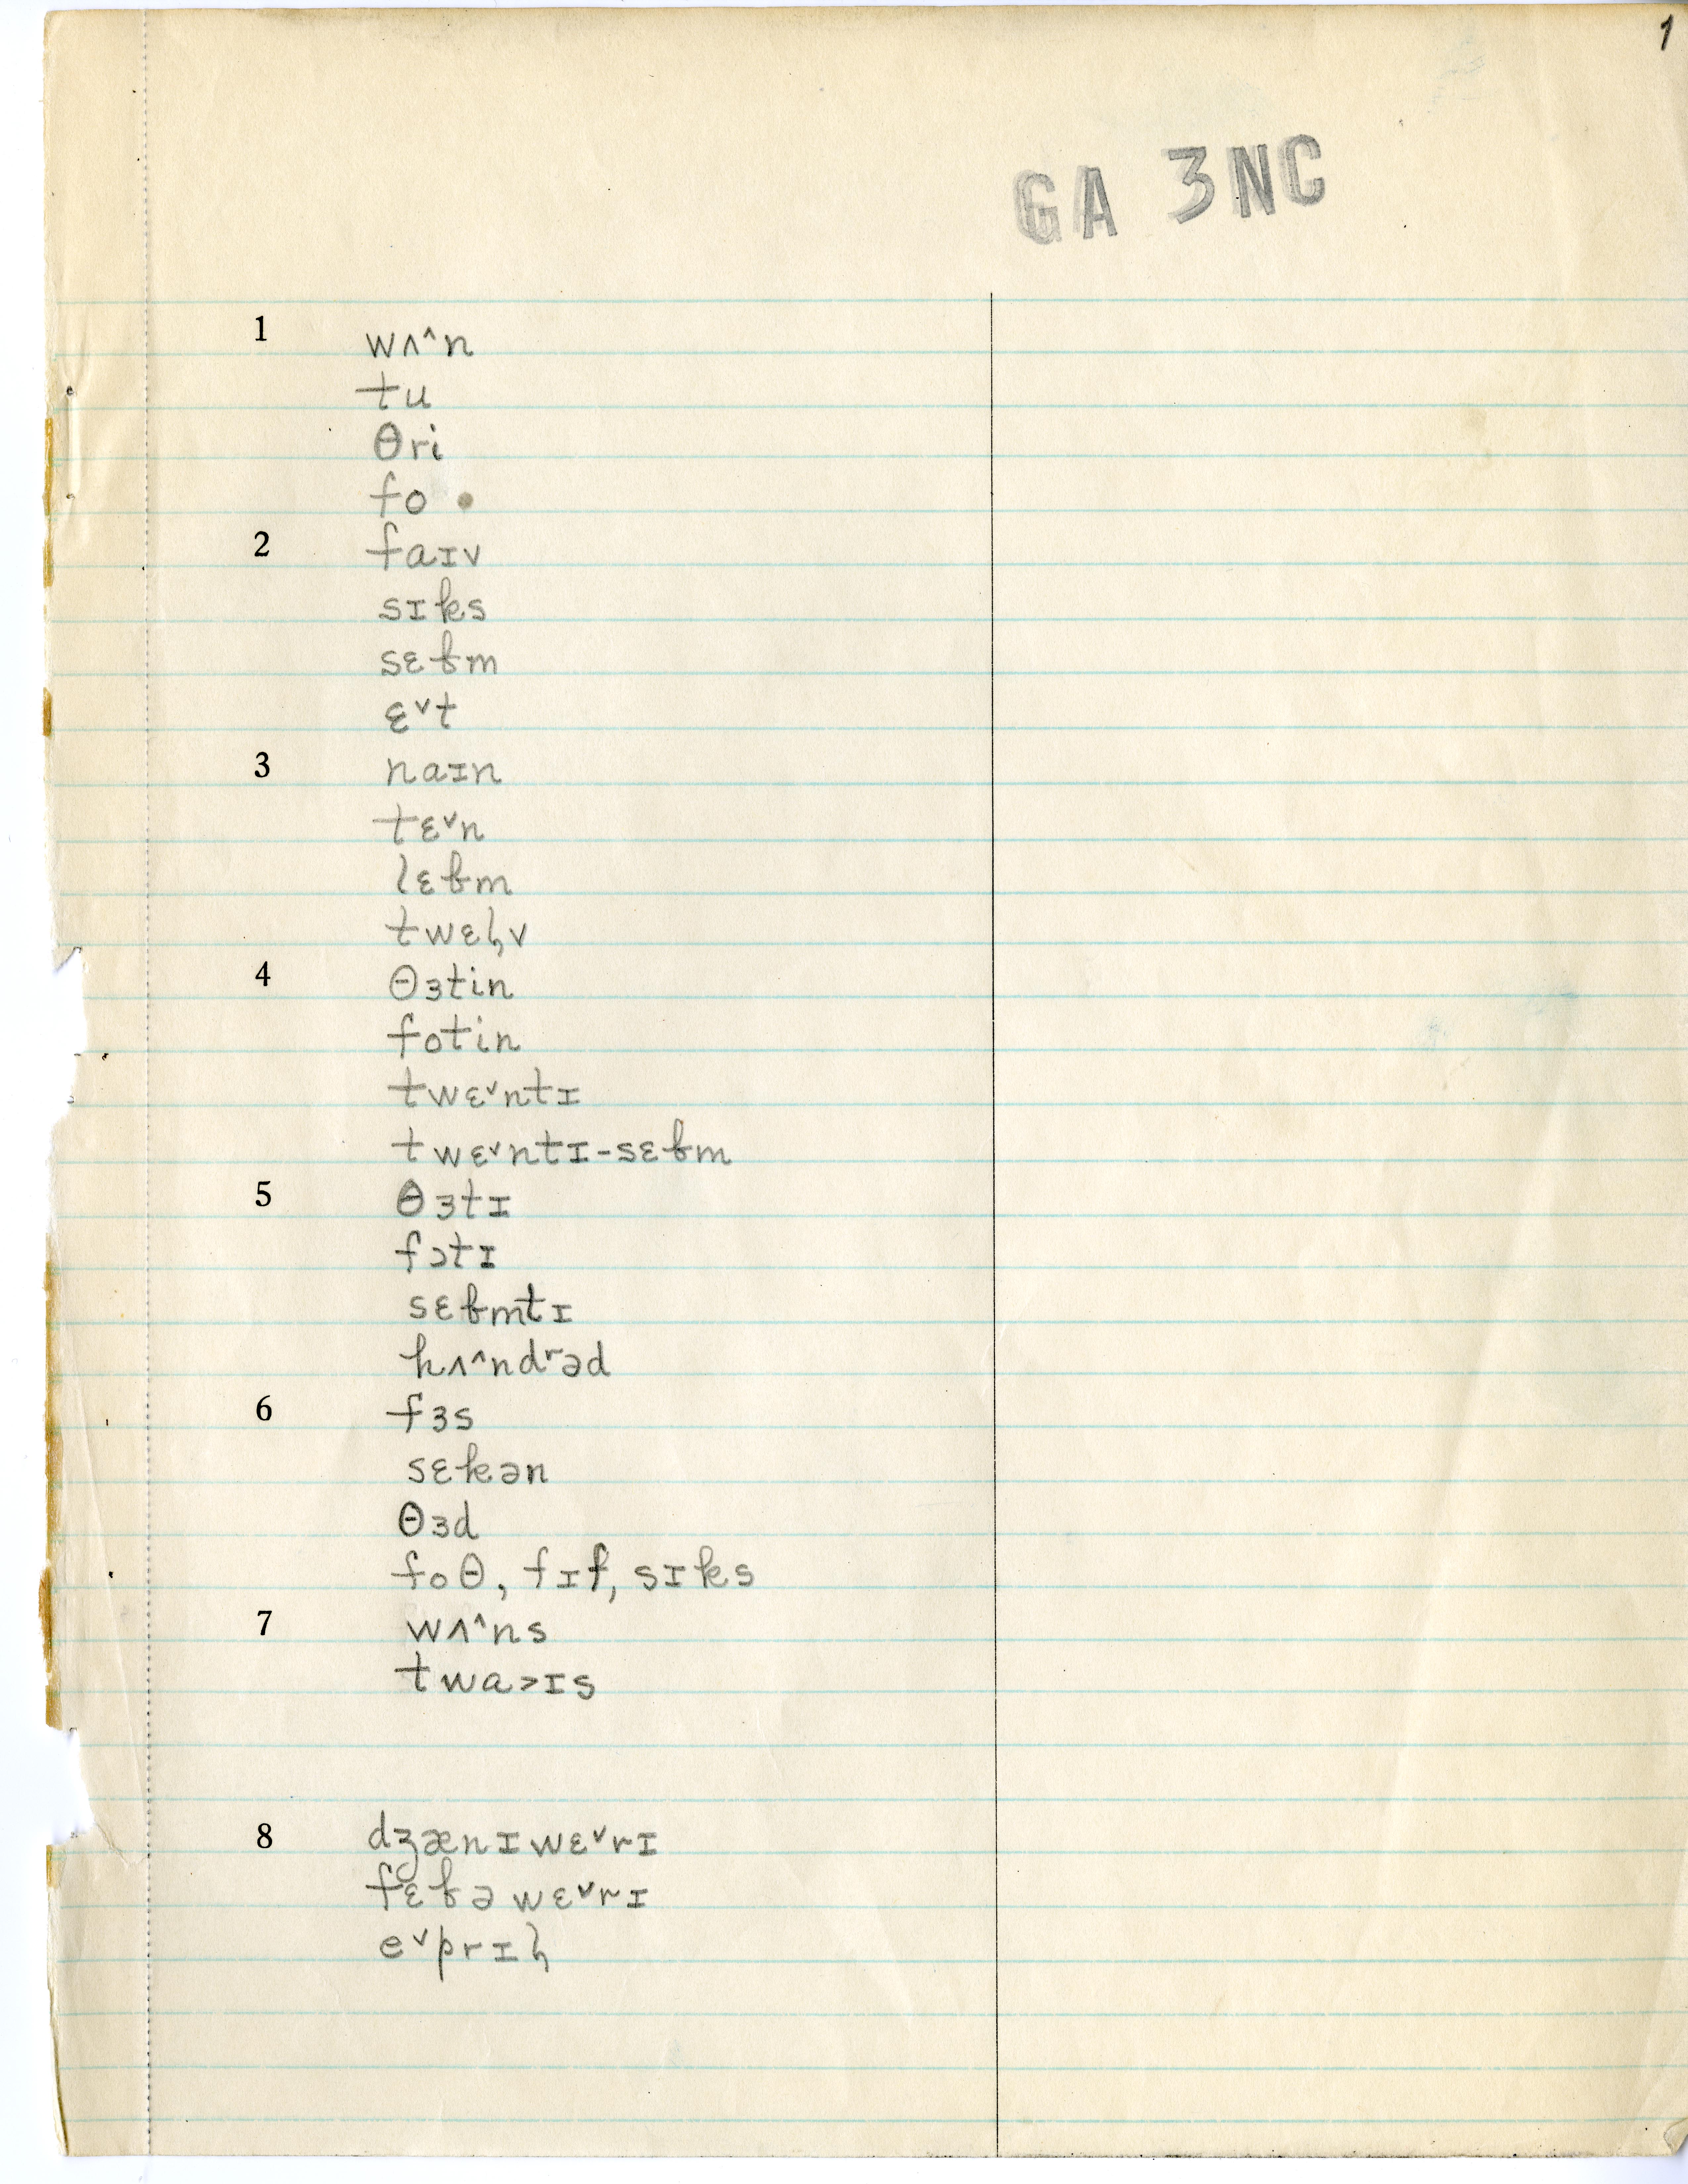 1
GA 3NC
1 wʌ^n
tu
θri
fo
2 faɪv
sɪks
sɛƀm
ɛ˅t
3 naɪn
tɛ˅n
lɛƀm
twɛɫ̡v
4 θɜtin
fotin
twɛ˅ntɪ
twɛ˅ntɪ-sɛƀm
5 θɜtɪ
fɔtɪ
sɛƀmtɪ
hʌ^ndʳəd
6 fɜs
sɛkən
θɜd
foθ, fɪf, sɪks
7 wʌ^ns
twa>ɪs
8 dʒænɪwɛ˅rɪ
fɛƀəwɛ˅rɪ
e˅prɪɫ̡